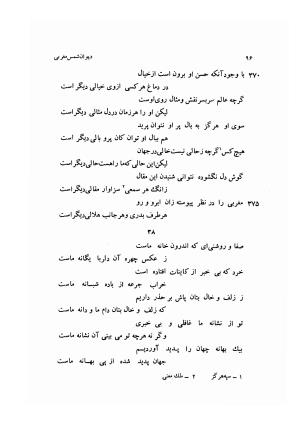 ۹۶
دیوان شمس مغربی
۳۷۰ با وجود آنکه حسن او برون است از خیال
در دماغ هر کسی ازوی خیالی دیگر است
گرچه عالم سربسر نقش ومثال روی اوست
لیکن او را هر زمان در دل مثالی دیگر است
سوی او هرگز به بال پر او نتوان پرید
هم ببال او توان کان پرو بالی دیگر است
هیچ کس ۱ گرچه زحالی نیست خالی در جهان
لیکن این حالی که ما راهست حالی دیگر است
گوش دل نگشوده نتوانی شنیدن این مقال
زانک هر سمعی ۲ سزاوار مقالی دیگر است
۳۷۵ مغربی را در نظر پیوسته زان ابرو و رو
هر طرف بدری و هر جانب هلالی دیگر است
۳۸
صفا و روشنی ای که اندرون خانه ماست
ز عکس چهره آن دلربا یگانه ماست
خرد که بی خبر از کاینات افتاده است
خراب جرعه از باده شبانه ماست
ز زلف و خال بتان پاش بر حذر داریم
که زلف و خال بتان دام ما و دانه ماست
تو از نشانه ما غافلی و بی خبری
وگر نه هرچه تو می بینی آن نشانه ماست
بیک بهانه جهان را پدید آوردیم
جهان پدید شده از پی بهانه ماست
۱ - سپه هرگز ۲ - ملک معنی